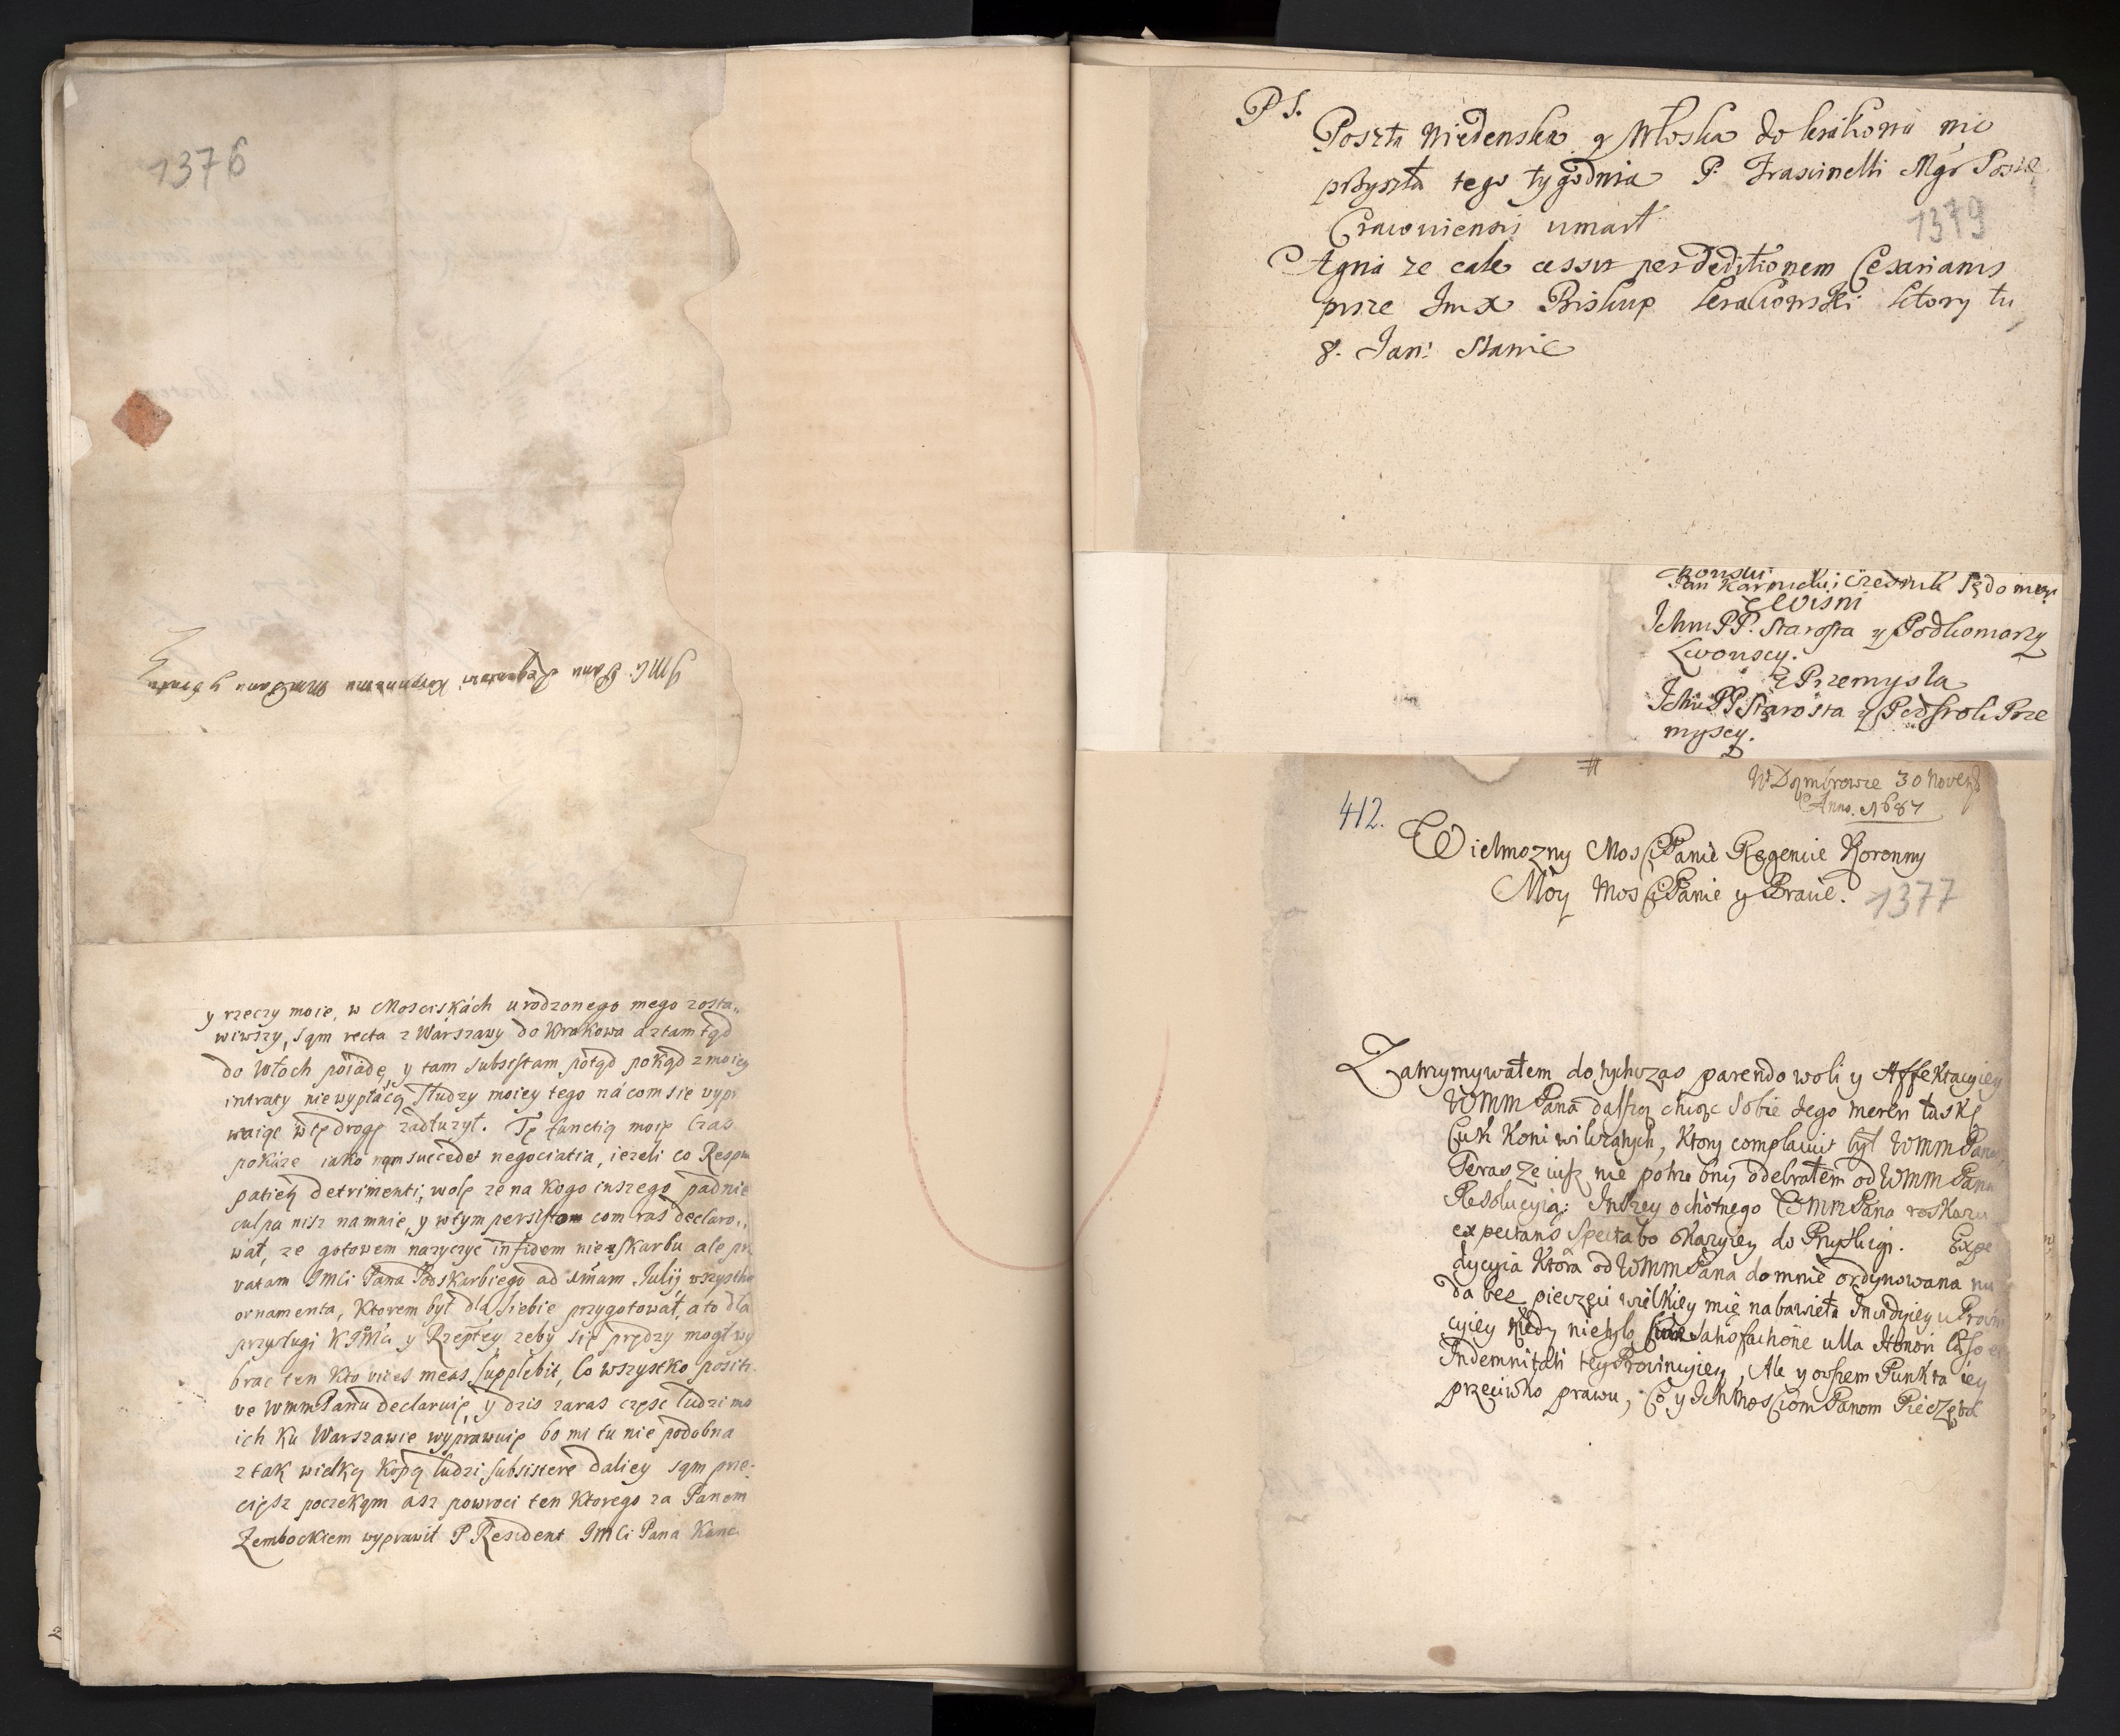 1376
JMći Panu Regentowi Koronnemu MM Panu y bratu
y rzeczy moie, w Mosciskách urodzonego mego zosta„
wiwszy, sąm recta z Wárszawy do Krakowa a ztam tąd
do Włoch poiadę, y tam subsistam potąd pokąd z moiey
intraty niewypłácą słudzy moiey tego ná com sie wypr
waiąc w tę drogę zadłużył. Tę functią moię czas
pokáze iako nam succedet negociatia, iezeli co Respu
patieť detrimenti, wolę ze na kogo inszego padnie
culpa nisz na mnie, y wtym persistam com ras declaro„
wał, ze gotowem nazyczyc in fidem nie skarbu ale pr
vatam JMći Pana Podskarbiego ad 1mam Julij wszystka
ornamenta, Ktorem był dla siebie przygotował, a to dla
przysługi K JMći y Rzeptey zeby się prędzy mogł wy
brac ten kto vices meas supplebit, Co wszystko positi
ve WmmPanu declaruię, y dzis zaras częsc ludzi mo
ich ku Warszawie wyprawuię bo mi tu nie podobna
z tak wielką kopą ludzi subsistere daliey sąm prze„
cięsz poczekąm asz powroci ten Ktorego za Panem
Zembockiem wyprawił P Resident JMći Pana Kanc
PS.
Poszta Wiedenska y Włoska do Krakowa nie
przyszła tego tygodnia P. Frasinelli Mgr Poszt
Cracoviensis umarł
1379
Agria ze cale cessit per deditionem Cesarianis
pisze Jmx Biskup Krakowski ktory tu
8. Jan: stanie
Pan Karnicki Czesnik Sędomier
Z Wisni
Ichm PP. Starosta y Podkomorzy
Lwonscy.
Z Przemysla
Ichm PP Starosta y Podstoli Prze
myscy.
W Dąmbrowie 30 Novemb
Anno. 1687
412.
Wielmozny Mosći Panie Regencie Koronny
Móy Mosći Panie y Bracie.
1377
Zatrzymywałem dotychczas parendo woli y Affektacyiey
WMM Pana dalszą chcąc sobie Jego mereri łaskę
Cuk Koni wilczatych, Ktory complacuit był WMM Panu,
Teras ze iusz nie potrzebny odebrałem od WMM Pana
Resolucyią; Inszey ochotnego WMM Pana roskazu
expectans spectabo okazyiey do Przysługi. Expe
dycyia Ktora od WMM Pana do mnie ordynowana
da bez pieczęci wielkiey mię nabawiela Invidyiey u Prowin
cyiey Kiedy nietylo satisfactione ulla Honori
Indemnitati tey Prowincyiey, Ale y owszem Punkta iey
przeciwko prawu, Co y Ich Mosciom Panom Pieczęt